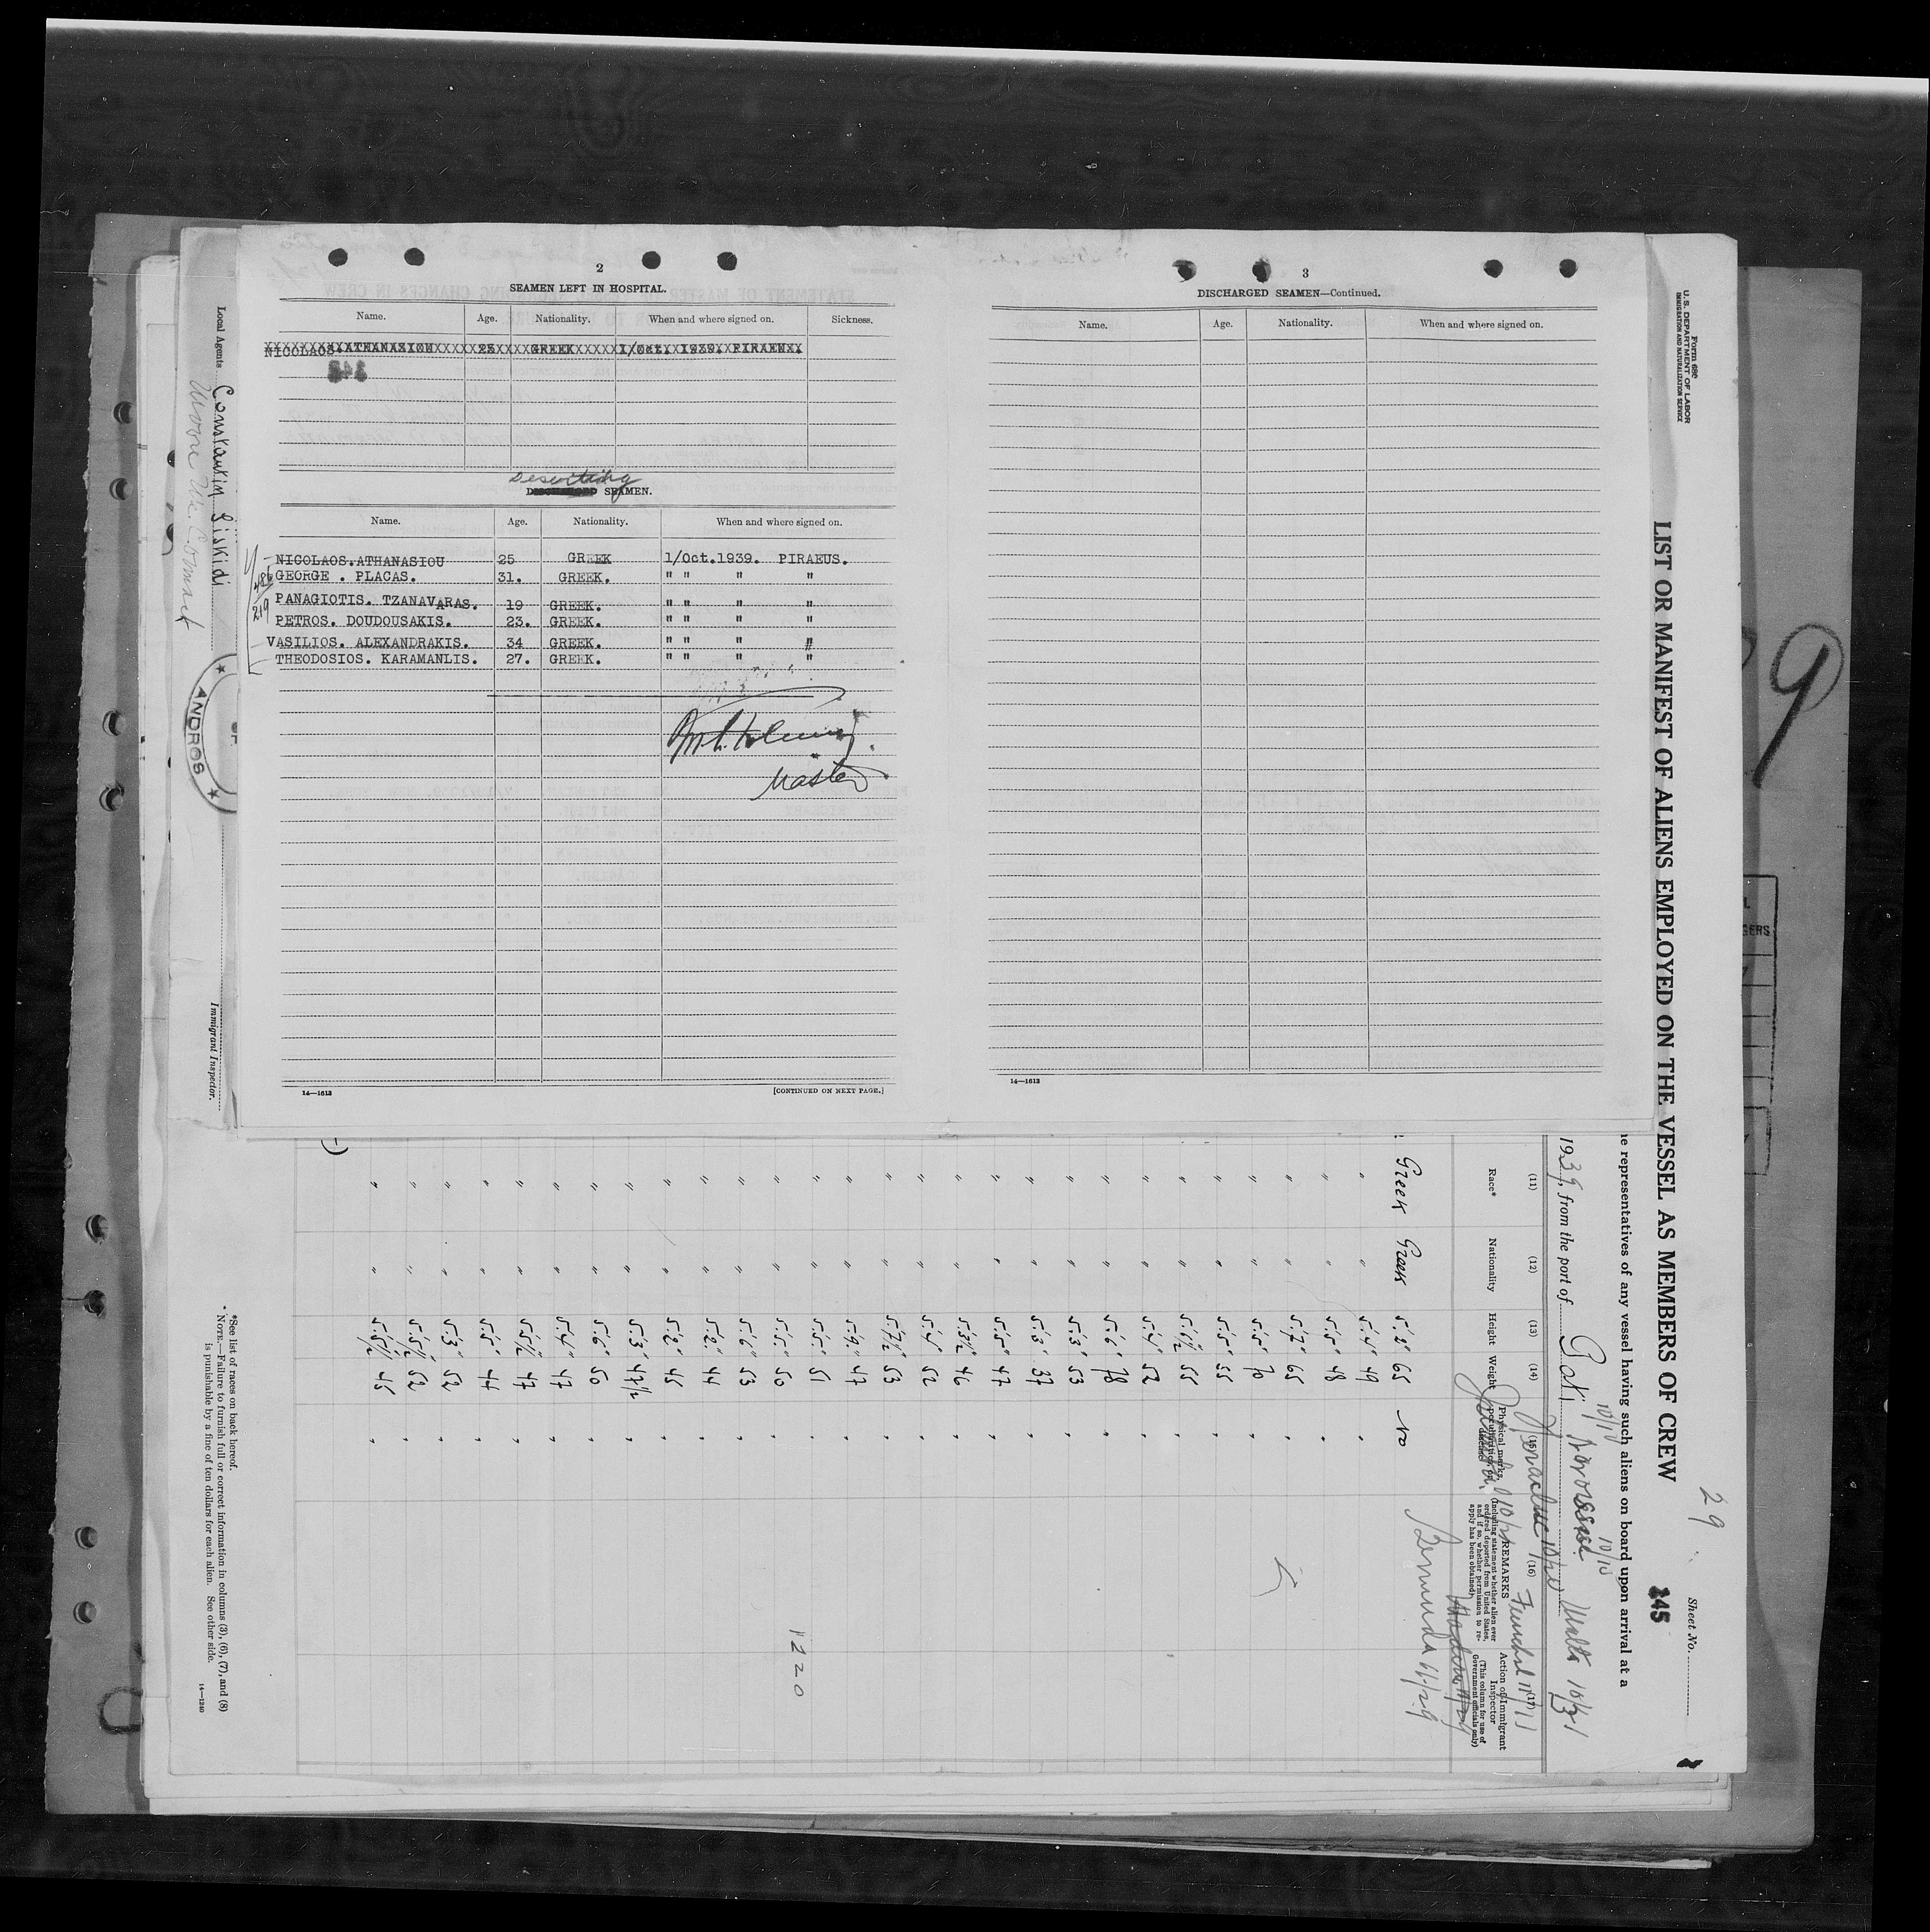 2
SEAMEN LEFT IN HOSPITAL.
Name. Age. Nationality. When and where signed on. Sickness.
NICOLAOS.ATHANASIOU 25 GREEK 1/Oct. 1939. PIRAEUS
Deserting
DISCHARGED SEAMEN.
Name. Age. Nationality. When and where signed on.
NICOLAOS.ATHANASIOU 25 GREEK 1/Oct.1939. PIRAEUS.
GEORGE . PLACAS. 31. GREEK. " " " "
PANAGIOTIS. TZANAVARAS. 19 GREEK. " " " "
PETROS. DOUDOUSAKIS. 23. GREEK. " " " "
VASILIOS. ALEXANDRAKIS. 34 GREEK. " " " "
THEODOSIOS. KARAMANLIS. 27. GREEK. " " " "
Master
14—1613
[CONTINUED ON NEXT PAGE.]
3
DISCHARGED SEAMEN—Continued.
Name. Age. Nationality. When and where signed on.
14—1613
Local Agents Constantin Liskidi
Moore
Immigrant Inspector.
★ ANDROS ★
9
GERS
Form 680
U. S. DEPARTMENT OF LABOR
IMMIGRATION AND NATURALIZATION SERVICE
Sheet No.
29
LIST OR MANIFEST OF ALIENS EMPLOYED ON THE VESSEL AS MEMBERS OF CREW
145
e representatives of any vessel having such aliens on board upon arrival at a
1939, from the port of Poti 10/10 10/18 Malta 10/31
10/20 Funchal 11/11
Bermuda 11/29
(11) (12) (13) (14) (15) (16) (17)
Race* Nationality Height Weight Physical marks, REMARKS
(Including statement whether alien ever
ordered deported from United States,
and if so, whether permission to re-
apply has been obtained)
Action of Immigrant
Inspector
(This column for use of
Government officials only)
Greek Greek 5'.2" 65 No
" " 5'.4" 49 "
" " 5'.5" 48 "
" " 5'.7" 65 "
" " 5'.5" 70 "
" " 5'.5" 55 "
" " 5'.6½ 55 "
" " 5'.4" 52 "
" " 5'.6" 78 "
" " 5'.3" 53 "
" " 5'.3" 37 "
" " 5'.5" 47 "
" " 5'.3½ 46 "
" " 5'.4" 52 "
" " 5'.7½ 53 "
" " 5'.9" 47 "
" " 5'.5" 51 "
" " 5'.5" 50 "
" " 5'.6" 53 "
" " 5'.2" 44 "
" " 5'.2" 45 "
" " 5'.3" 43½ "
" " 5'.6" 50 "
" " 5'.4" 47 "
" " 5'.5½ 47 "
" " 5'.5" 44 "
" " 5'.3" 52 "
" " 5'.5½ 52 "
" " 5'.5½ 45 "
1220
*See list of races on back hereof.
NOTE.—Failure to furnish full or correct information in columns (3), (6), (7), and (8)
is punishable by a fine of ten dollars for each alien. See other side.
14—1240